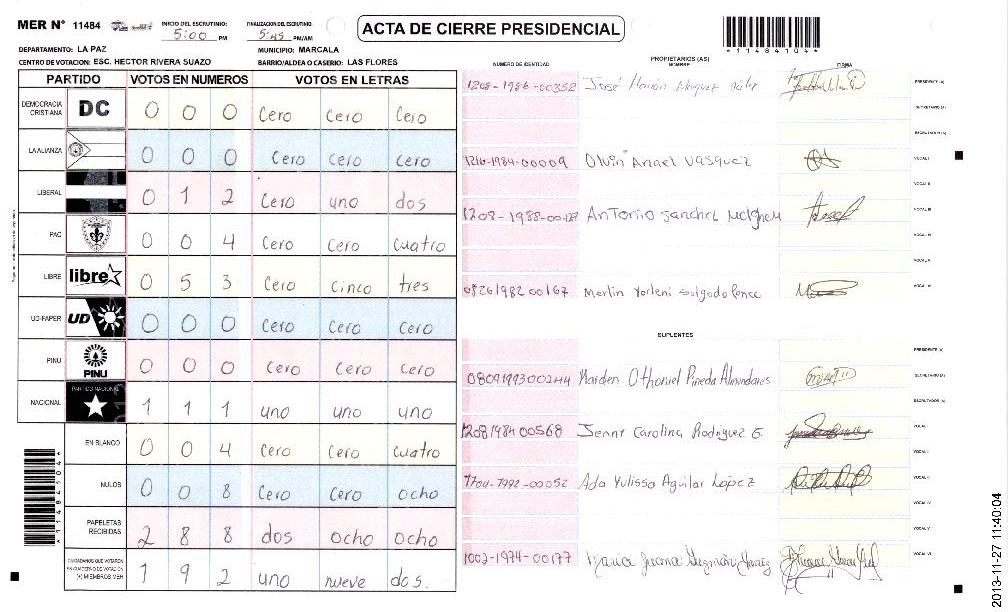 MER N° 11484
INICIO DEL ESCRUTINIO: 5:00 PM
FINALIZACION DEL ESCRUTINIO: 5:45 PM/AM
ACTA DE CIERRE PRESIDENCIAL
*11484104*
DEPARTAMENTO: LA PAZ
MUNICIPIO: MARCALA
CENTRO DE VOTACION: ESC. HECTOR RIVERA SUAZO
BARRIO/ALDEA O CASERIO: LAS FLORES
PARTIDO VOTOS EN NUMEROS VOTOS EN LETRAS
DEMOCRACIA CRISTIANA DC 0 0 0 Cero Cero Cero
LA ALIANZA 0 0 0 Cero Cero Cero
LIBERAL 0 1 2 Cero uno dos
PAC 0 0 4 Cero Cero cuatro
LIBRE libre 0 5 3 Cero Cinco tres
UD-FAPER UD 0 0 0 Cero Cero Cero
PINU PINU 0 0 0 Cero Cero Cero
NACIONAL PARTIDO NACIONAL 1 1 1 uno uno uno
EN BLANCO 0 0 4 Cero Cero cuatro
NULOS 0 0 8 Cero Cero ocho
PAPELETAS RECIBIDAS 2 8 8 dos ocho ocho
CIUDADANOS QUE VOTARON EN CUADERNO DE VOTACION (+) MIEMBROS MER 1 9 2 uno nueve dos.
*11484104*
NUMERO DE IDENTIDAD
PROPIETARIOS (AS)
NOMBRE
FIRMA
1208-1986-00352 José PRESIDENTE (A)
SECRETARIO (A)
ESCRUTADOR (A)
1216-1984-00009 Olvin Anael Vasquez VOCAL I
VOCAL II
1208-1988-00127 Antonio Sanchez VOCAL III
VOCAL IV
VOCAL V
0826198200167 Merlin Yorleni Salgado Ponce VOCAL VI
SUPLENTES
PRESIDENTE (A)
0809199300244 Marden Othoniel Pineda Almendares SECRETARIO (A)
ESCRUTADOR (A)
1208198400568 Jenny Carolina Rodriguez G. VOCAL I
VOCAL II
1704-1992-00052 Ada Yulissa Aguilar López VOCAL III
VOCAL IV
VOCAL V
1002-1974-00177 Maria Juana Guzmán VOCAL VI
2013-11-27 11:40:04